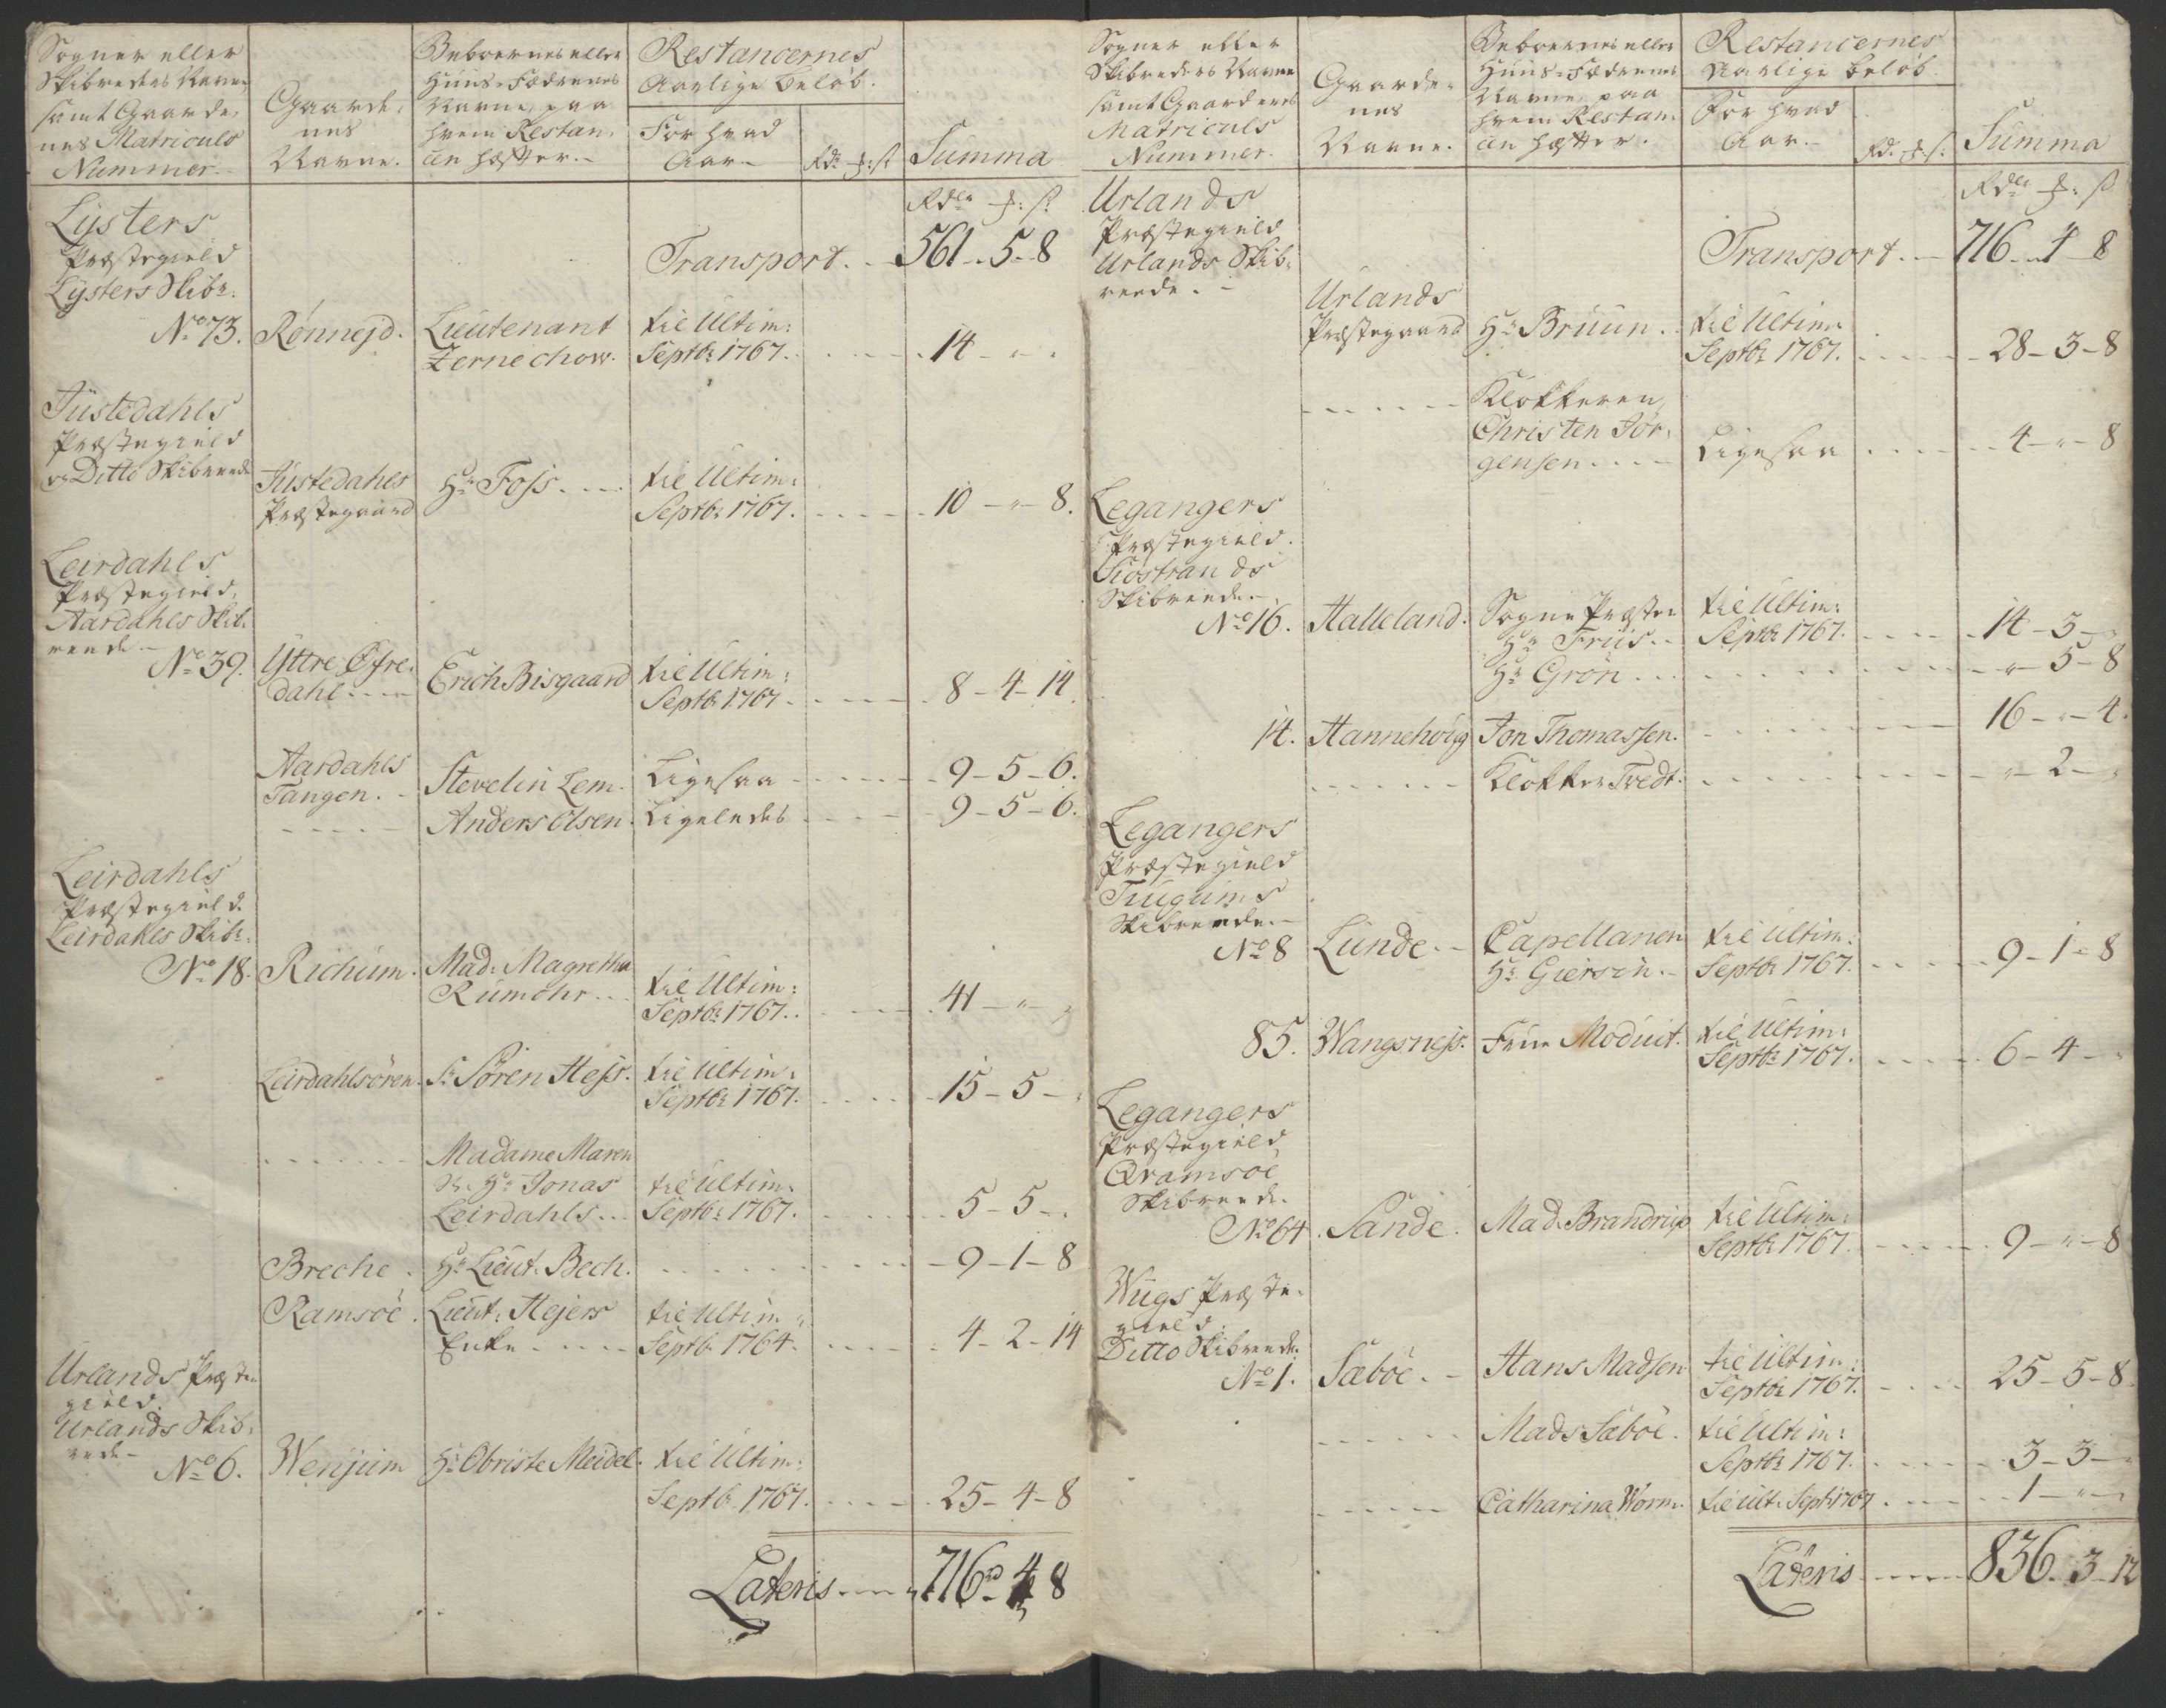 Sogner eller
Skibreders Navne
samt Gaarde-
nes Matriculs
Nummer.
Gaarde-
nes
Navne.
Beboernes eller
Huus-Fædrenes
Navne, paa
hvem Restan-
cen hæfter.
Restancernes
Aarlige beløb.
For hvad
Aar
Rd. ß
Summa
Rdlr ß
Lysters
Præstegield
Lysters Skibr:
Transport. 561. 5. 8
No 73. Rønnejd. Lieutenant til Ultim:
Zernechow. Septbr 1767. 14 - " -
Justedahls
Præstegield
og Ditto Skibrede
Justedahls Hr Foss. til Ultim:
Præstegaard Septbr: 1767. 10 - " - 8.
Leirdahls
Præstegield,
Aardahls Skib-
reede
No 39. Yttre Ofre- Erich Bisgaard til Ultim:
dahl Septbr 1767. 8 - 4 - 14.
Aardahls Stevelin Lem. Ligesaa 9 - 5 - 6.
Tangen.
Anders Olsen Ligeledes 9 - 5 - 6.
Leirdahls
Præstegield.
Leirdahls Skibr.
No 18. Richum. Mad: Magretha til Ultim:
Rumohr Septbr: 1767. 41 - " -
Leirdahlsören. Sr Sören Hess. til Ultim:
Septbr 1767. 15 - 5 -
Madame Maren
Hr Jonas til Ultim:
Leirdahls Septbr: 1767. 5 - 5 -
Breche. Hr Lieut. Bech. 9 - 1 - 8
Ramsoe. Lieut: Hejers til Ultim:
Enke Septb. 1764. 4 - 2 - 14
Urlands Præste-
gield.
Urlands Skib-
rede
No 6. Wenjum Hr Obriste Meidel. til Ultim:
Septb. 1767. 25 - 4 - 8
Lateris 716 - 4 - 8
Sogner eller
Skibreders Navne
samt Gaardenes
Matriculs
Nummer.
Gaarde-
nes
Navne.
Beboernes eller
Huus-Fædrenes
Navne, paa
hvem Restan-
cen hæfter.
Restancernes
Aarlige beløb.
For hvad
Aar.
Rd. ß
Summa
Rdlr ß
Urlands
Præstegield
Urlands Skib-
reede.
Transport. 716. 4 - 8
Urlands
Præstegaard Hr Bruun. til Ultim:
Septbr 1767. 28 - 3 - 8
Klokkeren
Christen Jör-
gensen Ligesaa 4 - " - 8
Legangers
Præstegield.
Siöstrands
Skibreede.
No 16. Halleland. Sogne Præsten til Ultim:
Hr Friis. Septbr 1767. 14 - 3 -
Hr Grön " - 5 - 8
14. Hannehöug Jon Thomassen. 16 - " - 4.
Klokker Tvedt. " - 2 -
Legangers
Præstegield
Tiugums
Skibreede.
No 8 Lunde. Capellanen til Ultim:
Hr Giersin. Septbr 1767. 9 - 1 - 8
85. Wangsness. Frue Moduit. til Ultim:
Septbr 1767. 6 - 4 -
Legangers
Præstegield,
Qvamsoe
Skibreede.
No 64. Sande. Mad. Brandrup til Ultim:
Septbr 1767. 9 - " - 8
Wiigs Præste-
gield.
Ditto Skibreede.
No 1. Sæböe. Hans Madsen til Ultim:
Septbr 1767. 25 - 5 - 8
Mads Sæböe. til Ultim:
Septbr 1767. 3 - 3 -
Catharina Worm. til Ult: Sept: 1767. 1 - " -
Lateris 836. 3 - 12